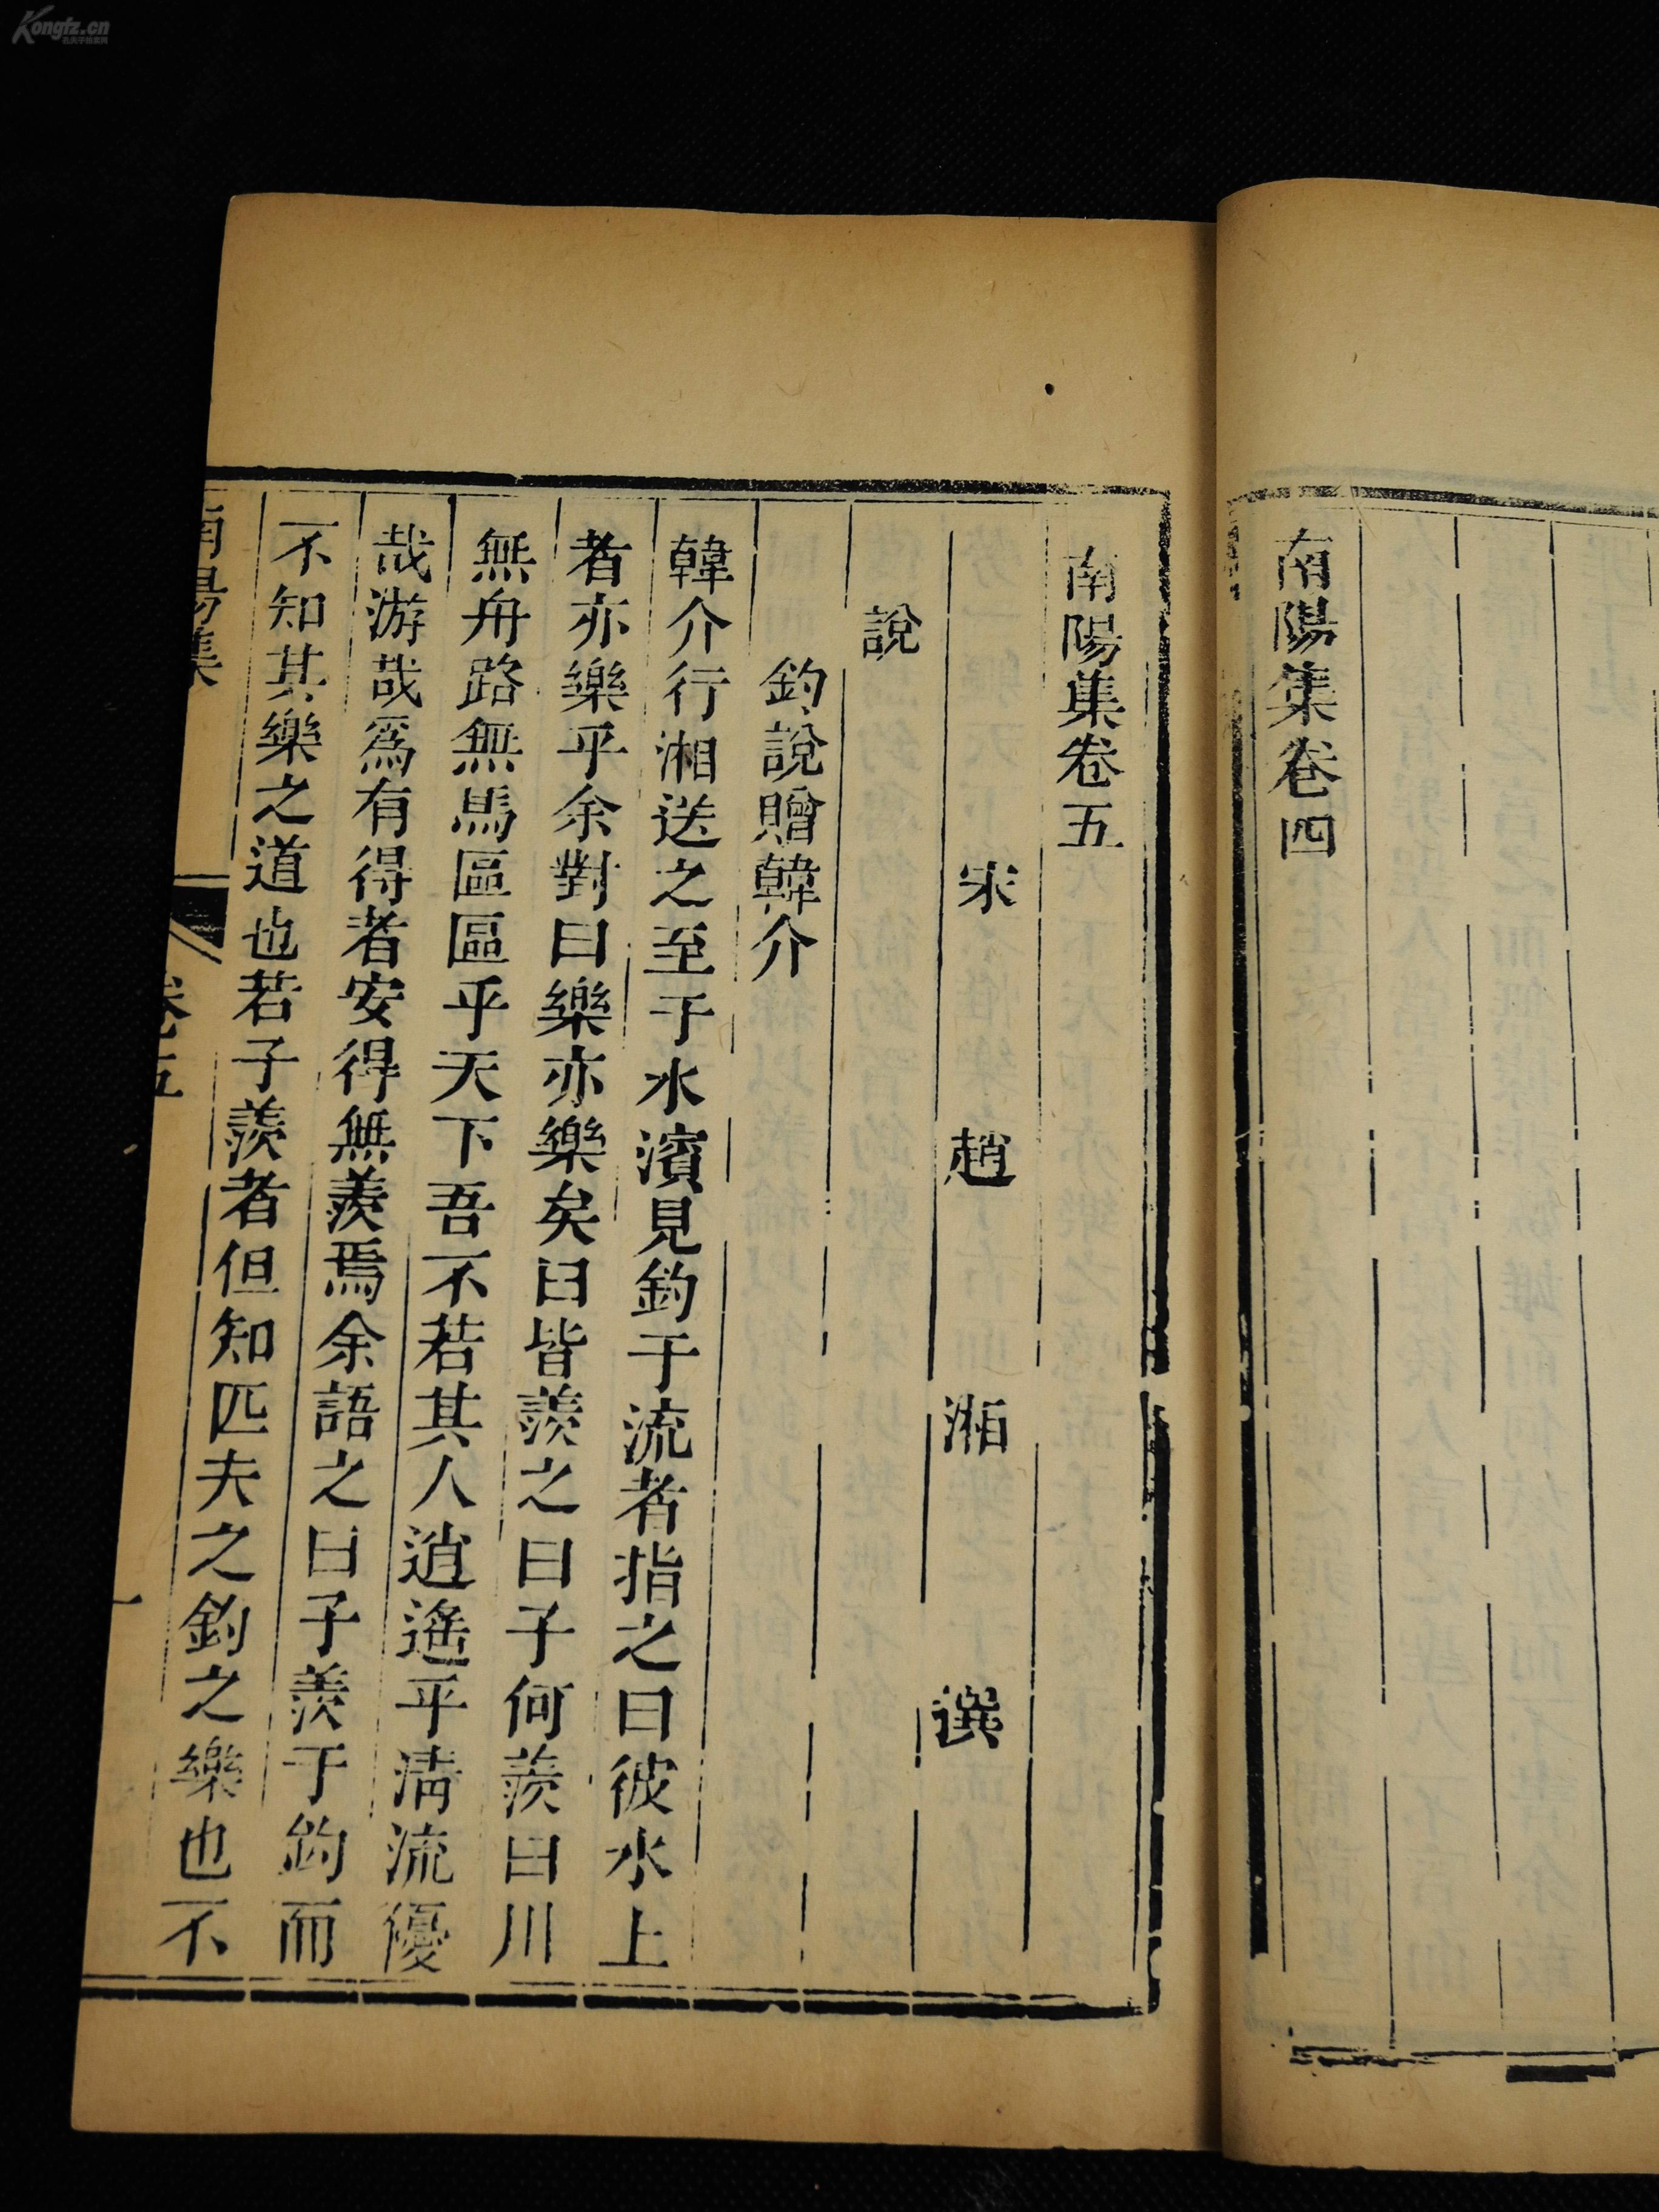 Kongfz.cn
孔夫子旧书网
南陽集卷四
南陽集卷五
宋 趙 湘 撰
說
釣說贈韓介
韓介行湘送之至于水濱見釣于流者指之曰彼水上
者亦樂乎余對曰樂亦樂矣曰皆羨之曰子何羨曰川
無舟路無馬區區乎天下吾不若其人逍遙乎淸流優
哉游哉爲有得者安得無羨焉余語之曰子羨于釣而
不知其樂之道也若子羨者但知匹夫之釣之樂也不
南陽集 卷五 一